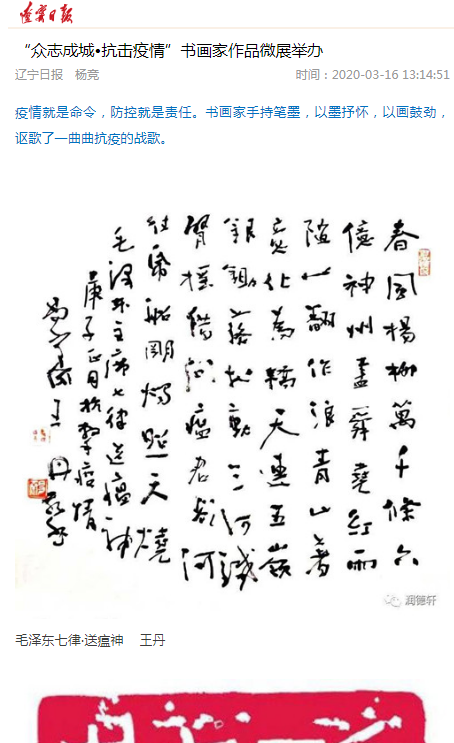 辽宁日报
“众志成城•抗击疫情”书画家作品微展举办
辽宁日报 杨竞 时间：2020-03-16 13:14:51
疫情就是命令，防控就是责任。书画家手持笔墨，以墨抒怀，以画鼓劲，
讴歌了一曲曲抗疫的战歌。
春風楊柳萬千條六
億神州盡舜堯紅雨
隨心翻作浪青山著
意化為橋天連五嶺
銀鋤落地動三河鐵
臂搖借问瘟君欲何
往紙船明燭照天燒
毛澤東主席七律送瘟神
庚子正月抗擊疫情
王丹
润德轩
毛泽东七律·送瘟神 王丹